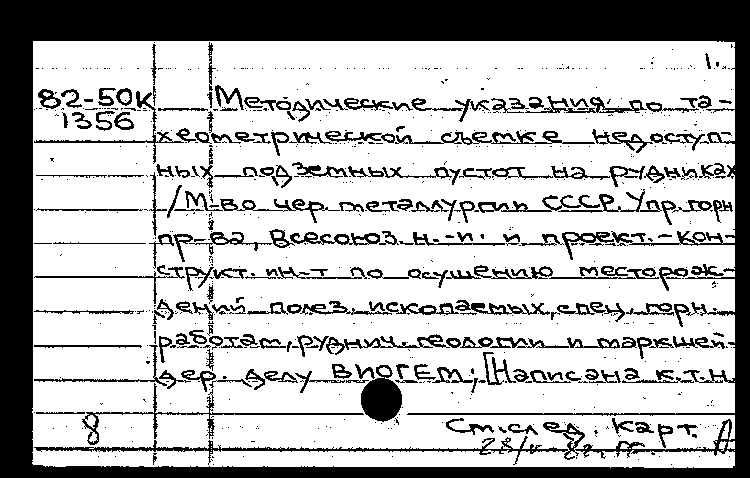 1.
82-50к Методические указания по та-
1356
хеометрической съемке недоступ-
ных подземных пустот на рудниках
/М-во чер. металлургии СССР. Упр. горн
пр-ва, Всесоюз. н.-и. и проект.-кон-
структ. ин-т по осушению месторож-
дений полез. ископаемых, спец. горн.
работам, руднич. геологии и маркшей-
дер. делу ВИОГЕМ; [Написана к.т.н.
8 См. след. карт.